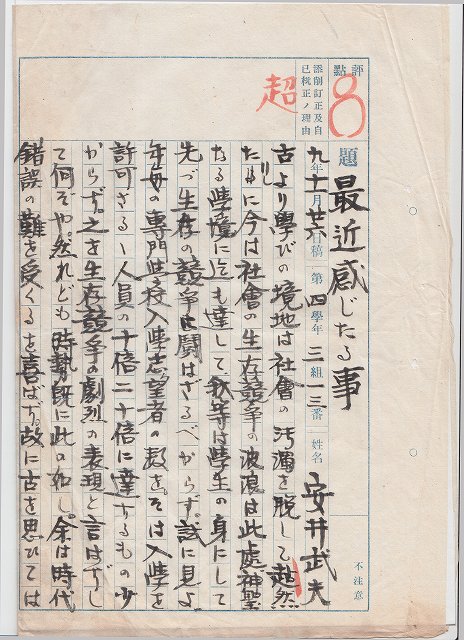 評點
8
添削訂正及自
己校正ノ理由
超
題 最近感じたる事
九年十一月廿六日稿 第四學年三組一三番 姓名 安井武夫
不注意
古より學びの境地は社會の汚濁を脱して超然
たりしに今は社會の生存競爭の波浪は此處神聖
なる學境に迄も達して我等は學生の身にして
先づ生存の競爭に鬪はざるべからず。試に見よ
年毎の專門學校入學志望者の數を。そは入學を
許可さるゝ人員の十倍二十倍に達するもの少
からず。之を生存競爭の劇烈の表現と言はずし
て何ぞや。然れども時勢既に此の如し。余は時代
錯誤の難を受くるを喜ばず。故に古を思ひては